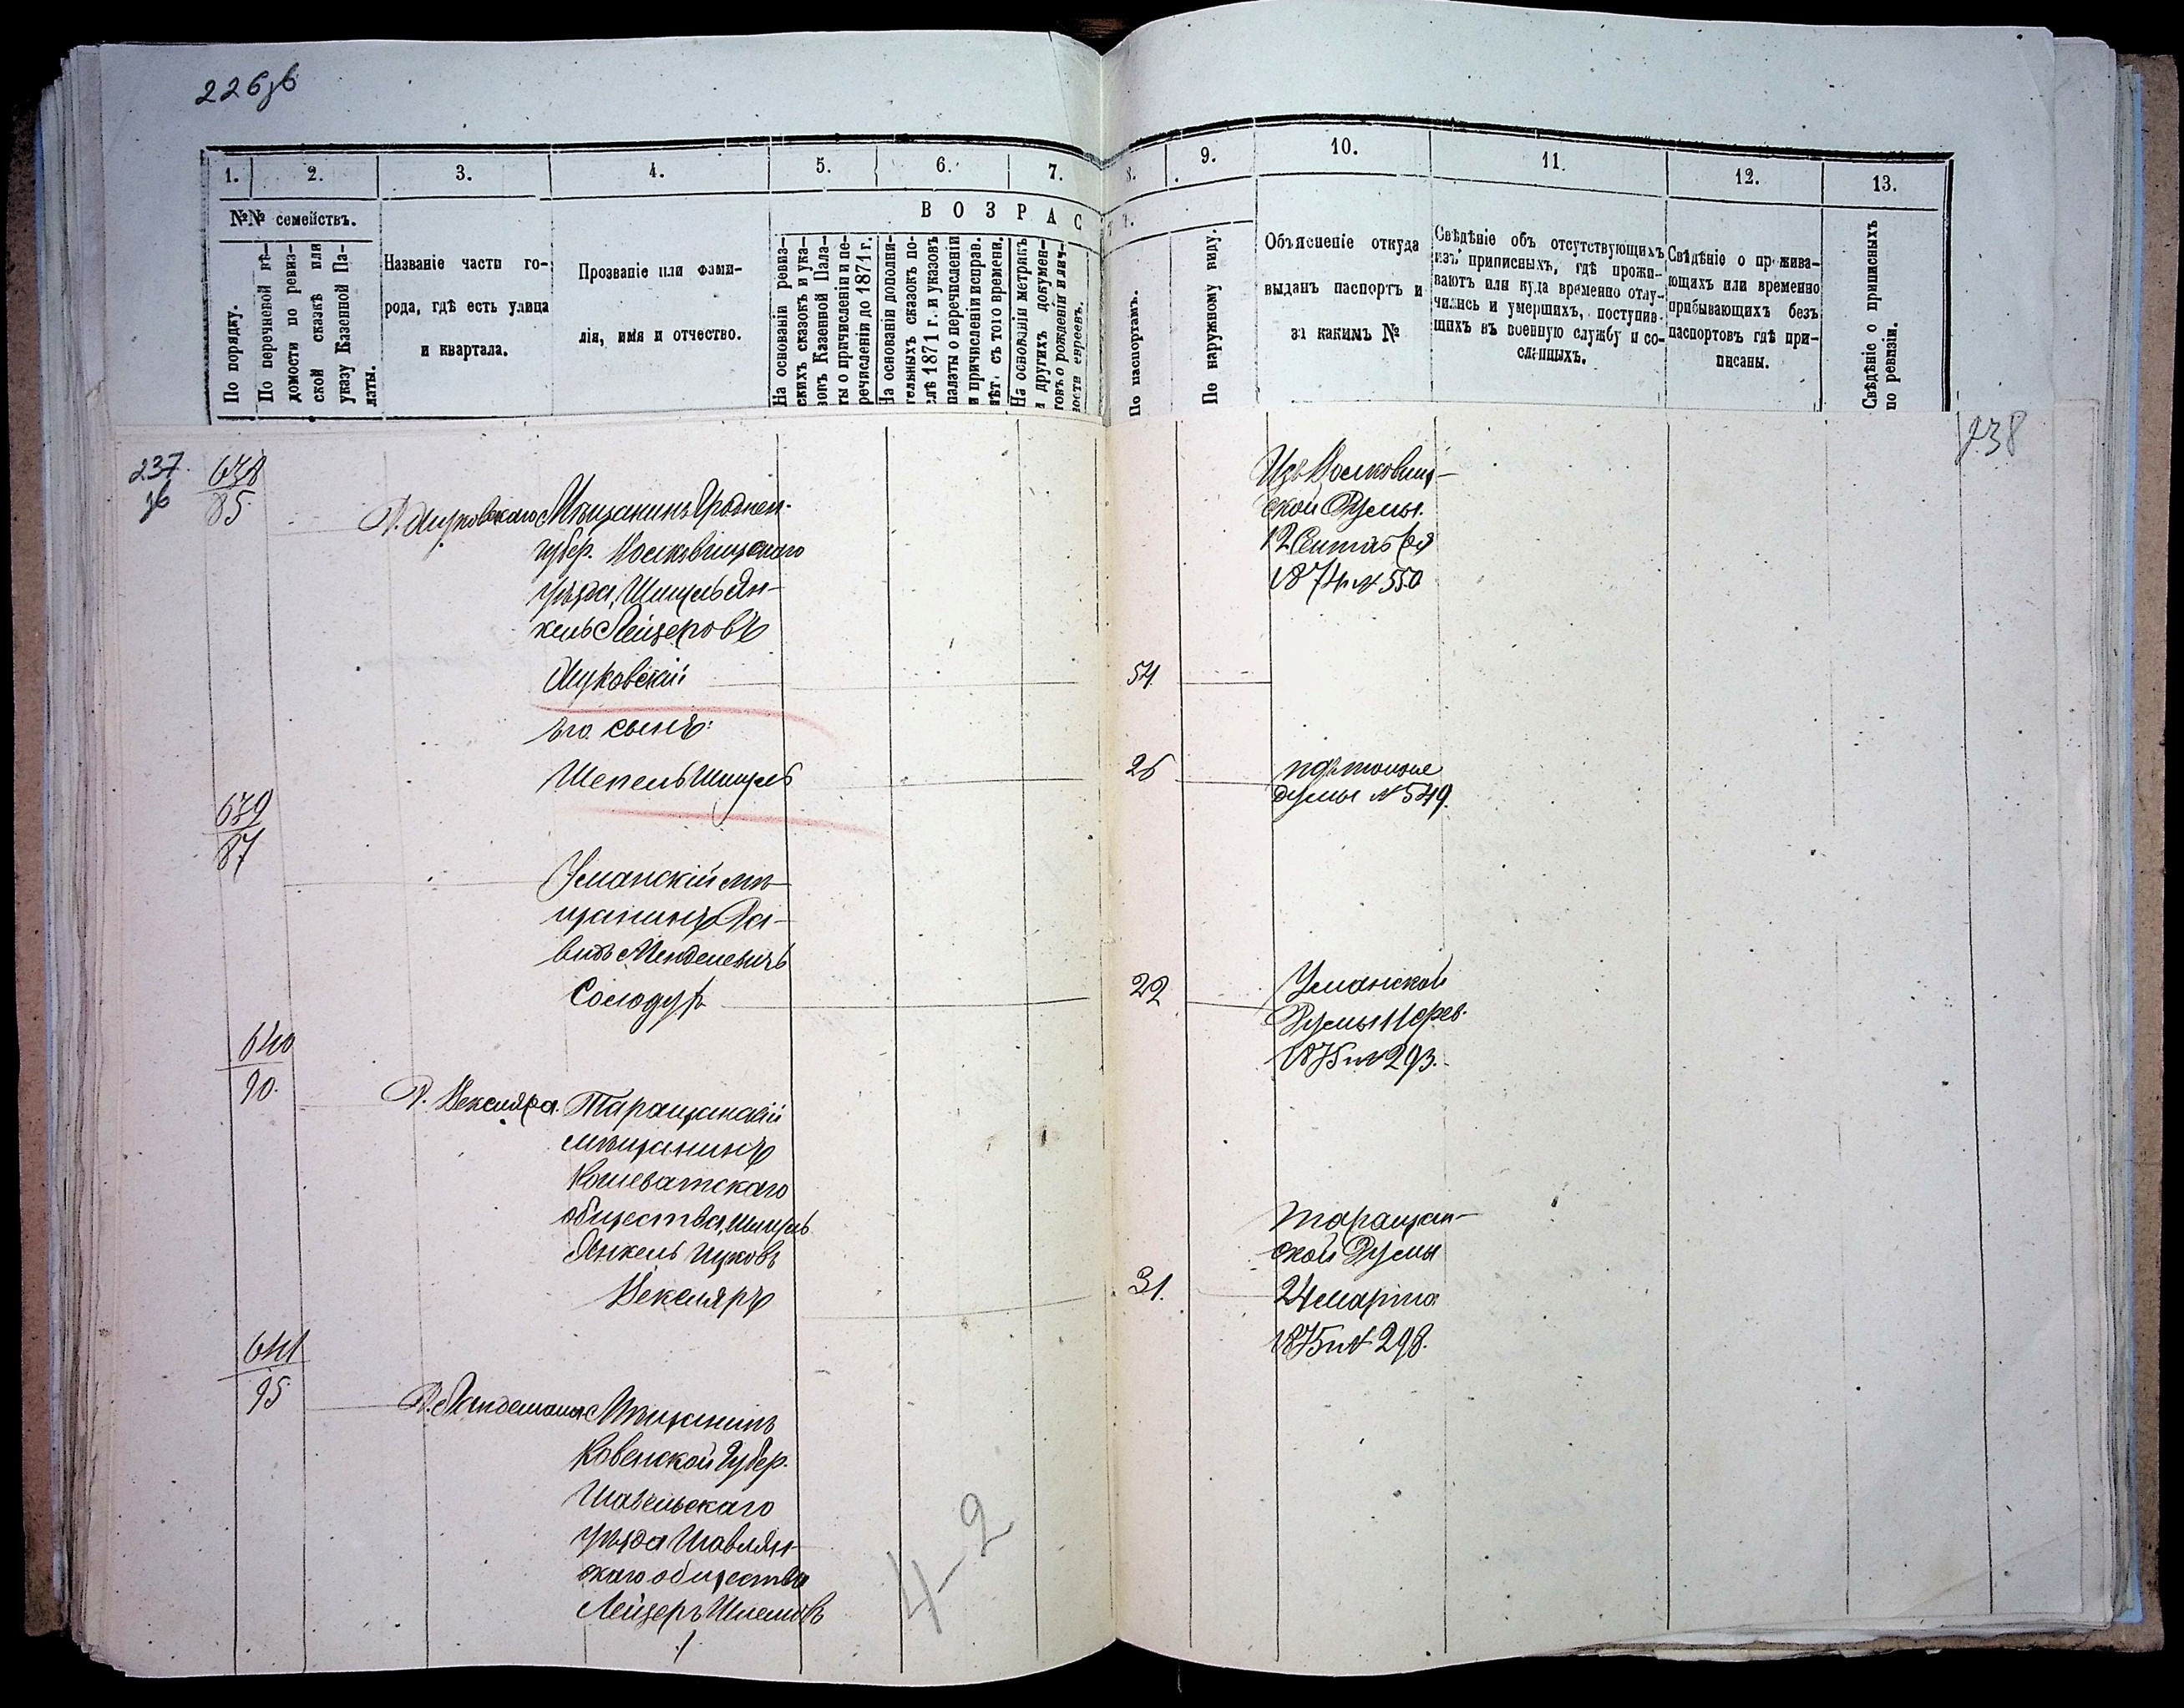 226 зв
1.
2.
3.
4.
5.
6.
7.
8.
9.
10.
11.
12.
13.
№№ семействъ.
По порядку.
По перечневой вѣ-
домости по ревиз-
ской сказкѣ или
указу Казенной Па-
латы.
Названіе части го-
рода, гдѣ есть улица
и квартала.
Прозваніе или фами-
лія, имя и отчество.
ВОЗРАС
На основаніи ревиз-
скихъ сказокъ и ука-
зовъ Казенной Пала-
ты о причисленіи и пе-
речисленіи до 1871 г.
На основаніи дополни-
тельныхъ сказокъ по-
слѣ 1871 г. и указовъ
палаты о перечисленіи
и причисленіи исправ.
лѣт. съ того времени.
На основаніи метрикъ
и другихъ докумен-
товъ о рожденіи или лич-
ности евреевъ.
По паспортамъ.
По наружному виду.
Объясненіе откуда
выданъ паспортъ и
за какимъ №
Свѣдѣніе объ отсутствующихъ
изъ приписныхъ, гдѣ прожи-
ваютъ или куда временно отлу-
чились и умершихъ, поступив-
шихъ въ военную службу и со-
сланныхъ.
Свѣдѣніе о прожива-
ющихъ или временно
прибывающихъ безъ
паспортовъ гдѣ при-
писаны.
Свѣдѣніе о приписныхъ
по ревизіи.
237
зв
238
638
85
Мѣщанинъ Гроднен.
губер. Волковыщскаго
уѣзда, Шицель Ян-
кель Лейзеровъ
54
Изъ Волковыщ-
ской Думы.
12 Сентября
1874 № 550
его сынъ:
26
изъ той же
думы № 549.
639
87
Уманскій мѣ-
щанинъ Да-
видъ Менделевичъ
Солодуръ
22
Уманской
Думы 11 фев.
1875 № 293.
640
90.
Д. Векслера. Таращанскій
мѣщанинъ
Кошеватскаго
общества,
Янкель Ицковъ
Векслеръ
31.
Таращан-
ской Думы
24 марта
1875 № 298.
641
95
Д. Ландсмана Мѣщанинъ
Ковенской Губер.
Шавельскаго
уѣзда Шавлян-
скаго общества
Лейзеръ Шлемовъ
4-2